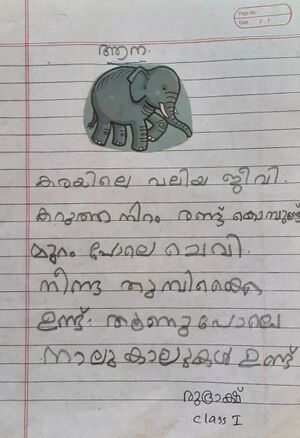 Page No.
Date
ആന.
കരയിലെ വലിയ ജീവി.
കറുത്ത നിറം രണ്ട് കൊമ്പുണ്ട്
മുറം പോലെ ചെവി.
നീണ്ട തുമ്പിക്കൈ
ഉണ്ട്. തൂണു പോലെ
നാലു കാലുകൾ ഉണ്ട്
രുദ്രാക്ഷ്
class I